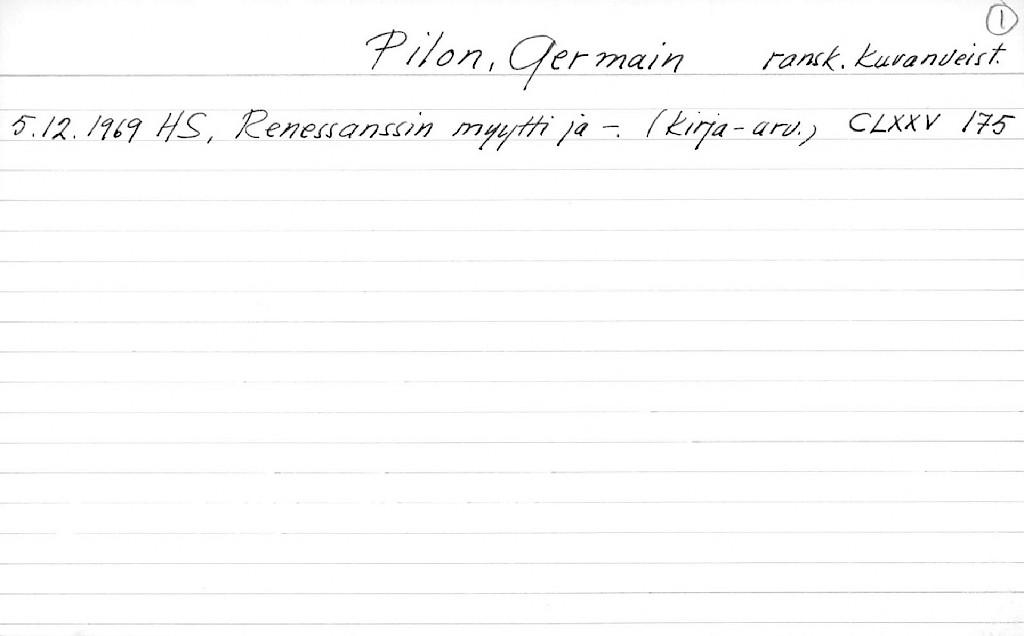 1
Pilon, Germain ransk. kuvanveist.
5.12.1969 HS, Renessanssin myytti ja -. (kirja-arv.) CLXXV 175